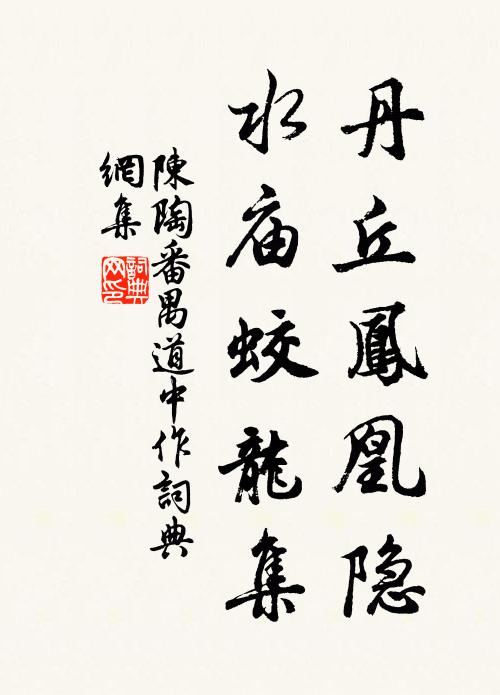 丹丘鳳凰隐
水庙蛟龍集
陳陶番禺道中作詞典
網集
詞典網印